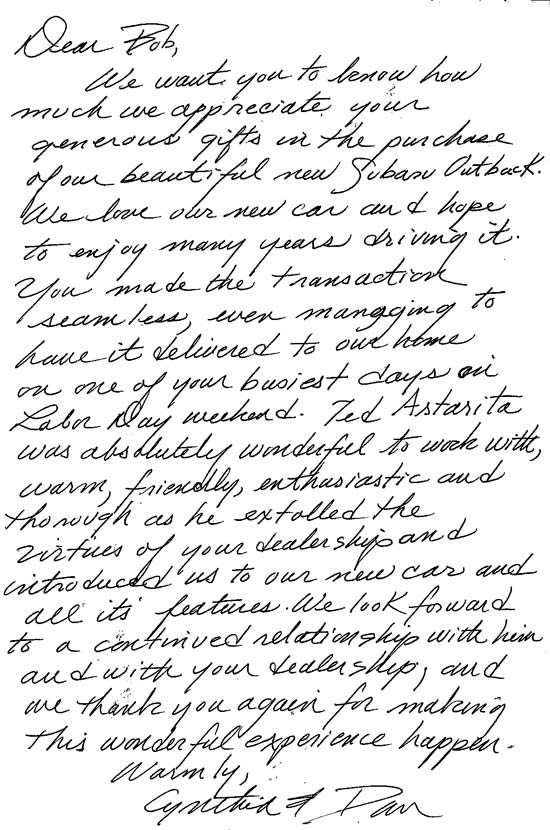 Dear Bob,
We want you to know how
much we appreciate your
generous gifts in the purchase
of our beautiful new Subaru Outback.
We love our new car and hope
to enjoy many years driving it.
You made the transaction
seamless, even managing to
have it delivered to our home
on one of your busiest days on
Labor Day weekend. Ted Astarita
was absolutely wonderful to work with,
warm, friendly, enthusiastic and
thorough as he extolled the
virtues of your dealership and
introduced us to our new car and
all its' features. We look forward
to a continued relationship with him
and with your dealership, and
we thank you again for making
this wonderful experience happen.
Warmly,
Cynthia &